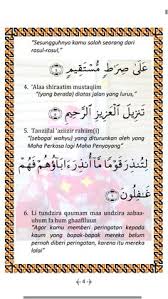 "Sesungguhnya kamu salah seorang dari
rasul-rasul,"
عَلَىٰ صِرَٰطٍ مُّسْتَقِيمٍ
4. 'Alaa shiraatim mustaqiim
"(yang berada) diatas jalan yang lurus,"
تَنزِيلَ ٱلْعَزِيزِ ٱلرَّحِيمِ
5. Tanziilal 'aziizir rahiim(i)
"(sebagai wahyu) yang diturunkan oleh yang
Maha Perkasa lagi Maha Penyayang"
لِتُنذِرَ قَوْمًا مَّآ أُنذِرَ ءَابَآؤُهُمْ فَهُمْ
غَٰفِلُونَ
6. Li tundzira qaumam maa undzira aabaa-
uhum fa hum ghaafiluun(a)
"Agar kamu memberi peringatan kepada
kaum yang bapak-bapak mereka belum
pernah diberi peringatan, karena itu mereka
lalai"
4